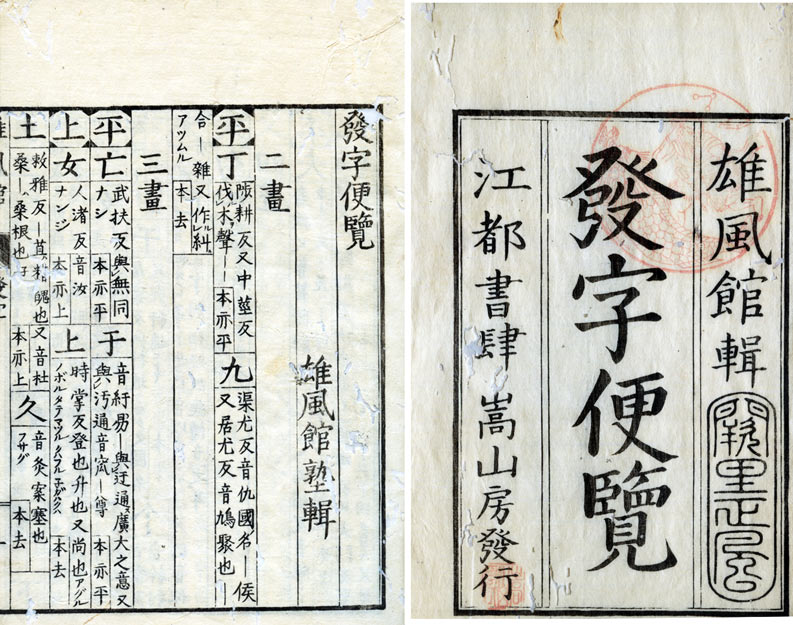 雄風館輯
發字便覽
江都書肆 嵩山房發行
發字便覽
雄風館塾輯
二畫
平 丁
陟耕反又中莖反
伐木聲｜｜ 本亦平
九
渠尤反音仇國名｜侯
又居尤反音鳩聚也
合｜雜又作糾
アツムル 本去
三畫
平 亡
武扶反與無同
ナシ 本亦平
于
音紆易｜與迂通廣大之意又
與汚通音｜尊 本亦平
上 女
人渚反音汝
ナンジ 本亦上
上
時掌反登也升也又尚也アグル
ノボル タテマツル 本去
土
敕雅反｜其粕魄也又音杜
桑｜桑根也 本亦上
久
音灸案塞也
フサグ 本去